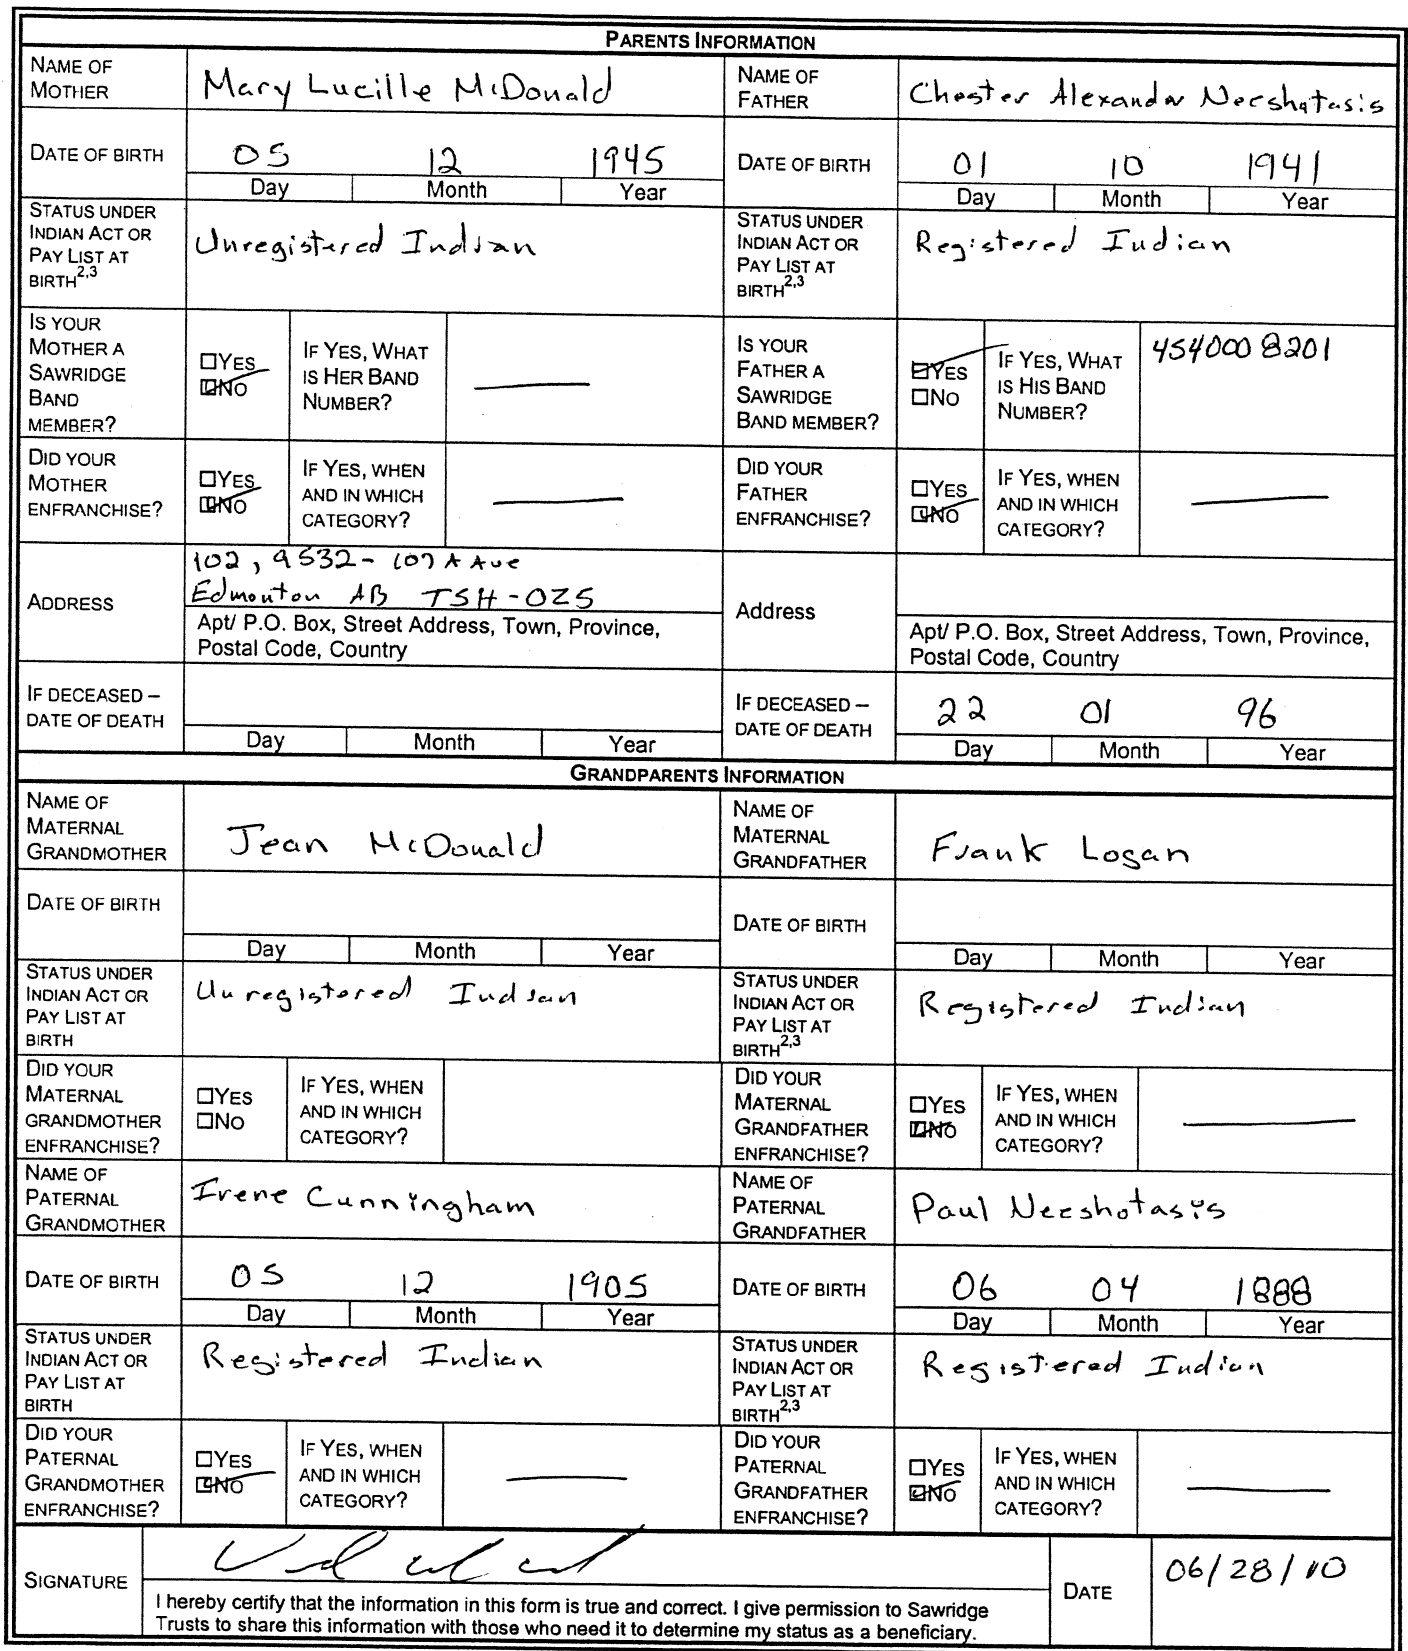 PARENTS INFORMATION
NAME OF MOTHER
Mary Lucille McDonald
NAME OF FATHER
Chester Alexander Neeshotasis
DATE OF BIRTH
05 12 1945
Day Month Year
DATE OF BIRTH
01 10 1941
Day Month Year
STATUS UNDER INDIAN ACT OR PAY LIST AT BIRTH2,3
Unregistered Indian
STATUS UNDER INDIAN ACT OR PAY LIST AT BIRTH2,3
Registered Indian
IS YOUR MOTHER A SAWRIDGE BAND MEMBER?
☐YES
☑NO
IF YES, WHAT IS HER BAND NUMBER?
—
IS YOUR FATHER A SAWRIDGE BAND MEMBER?
☑YES
☐NO
IF YES, WHAT IS HIS BAND NUMBER?
4540008201
DID YOUR MOTHER ENFRANCHISE?
☐YES
☑NO
IF YES, WHEN AND IN WHICH CATEGORY?
—
DID YOUR FATHER ENFRANCHISE?
☐YES
☑NO
IF YES, WHEN AND IN WHICH CATEGORY?
—
ADDRESS
102, 9532 - 107 A Ave
Edmonton AB T5H-0Z5
Apt/ P.O. Box, Street Address, Town, Province,
Postal Code, Country
Address
Apt/ P.O. Box, Street Address, Town, Province,
Postal Code, Country
IF DECEASED – DATE OF DEATH
Day Month Year
IF DECEASED – DATE OF DEATH
22 01 96
Day Month Year
GRANDPARENTS INFORMATION
NAME OF MATERNAL GRANDMOTHER
Jean McDonald
NAME OF MATERNAL GRANDFATHER
Frank Logan
DATE OF BIRTH
Day Month Year
DATE OF BIRTH
Day Month Year
STATUS UNDER INDIAN ACT OR PAY LIST AT BIRTH
Unregistered Indian
STATUS UNDER INDIAN ACT OR PAY LIST AT BIRTH2,3
Registered Indian
DID YOUR MATERNAL GRANDMOTHER ENFRANCHISE?
☐YES
☐NO
IF YES, WHEN AND IN WHICH CATEGORY?
DID YOUR MATERNAL GRANDFATHER ENFRANCHISE?
☐YES
☑NO
IF YES, WHEN AND IN WHICH CATEGORY?
—
NAME OF PATERNAL GRANDMOTHER
Irene Cunningham
NAME OF PATERNAL GRANDFATHER
Paul Neeshotasis
DATE OF BIRTH
05 12 1905
Day Month Year
DATE OF BIRTH
06 04 1888
Day Month Year
STATUS UNDER INDIAN ACT OR PAY LIST AT BIRTH
Registered Indian
STATUS UNDER INDIAN ACT OR PAY LIST AT BIRTH2,3
Registered Indian
DID YOUR PATERNAL GRANDMOTHER ENFRANCHISE?
☐YES
☑NO
IF YES, WHEN AND IN WHICH CATEGORY?
—
DID YOUR PATERNAL GRANDFATHER ENFRANCHISE?
☐YES
☑NO
IF YES, WHEN AND IN WHICH CATEGORY?
—
SIGNATURE
I hereby certify that the information in this form is true and correct. I give permission to Sawridge
Trusts to share this information with those who need it to determine my status as a beneficiary.
DATE
06/28/10